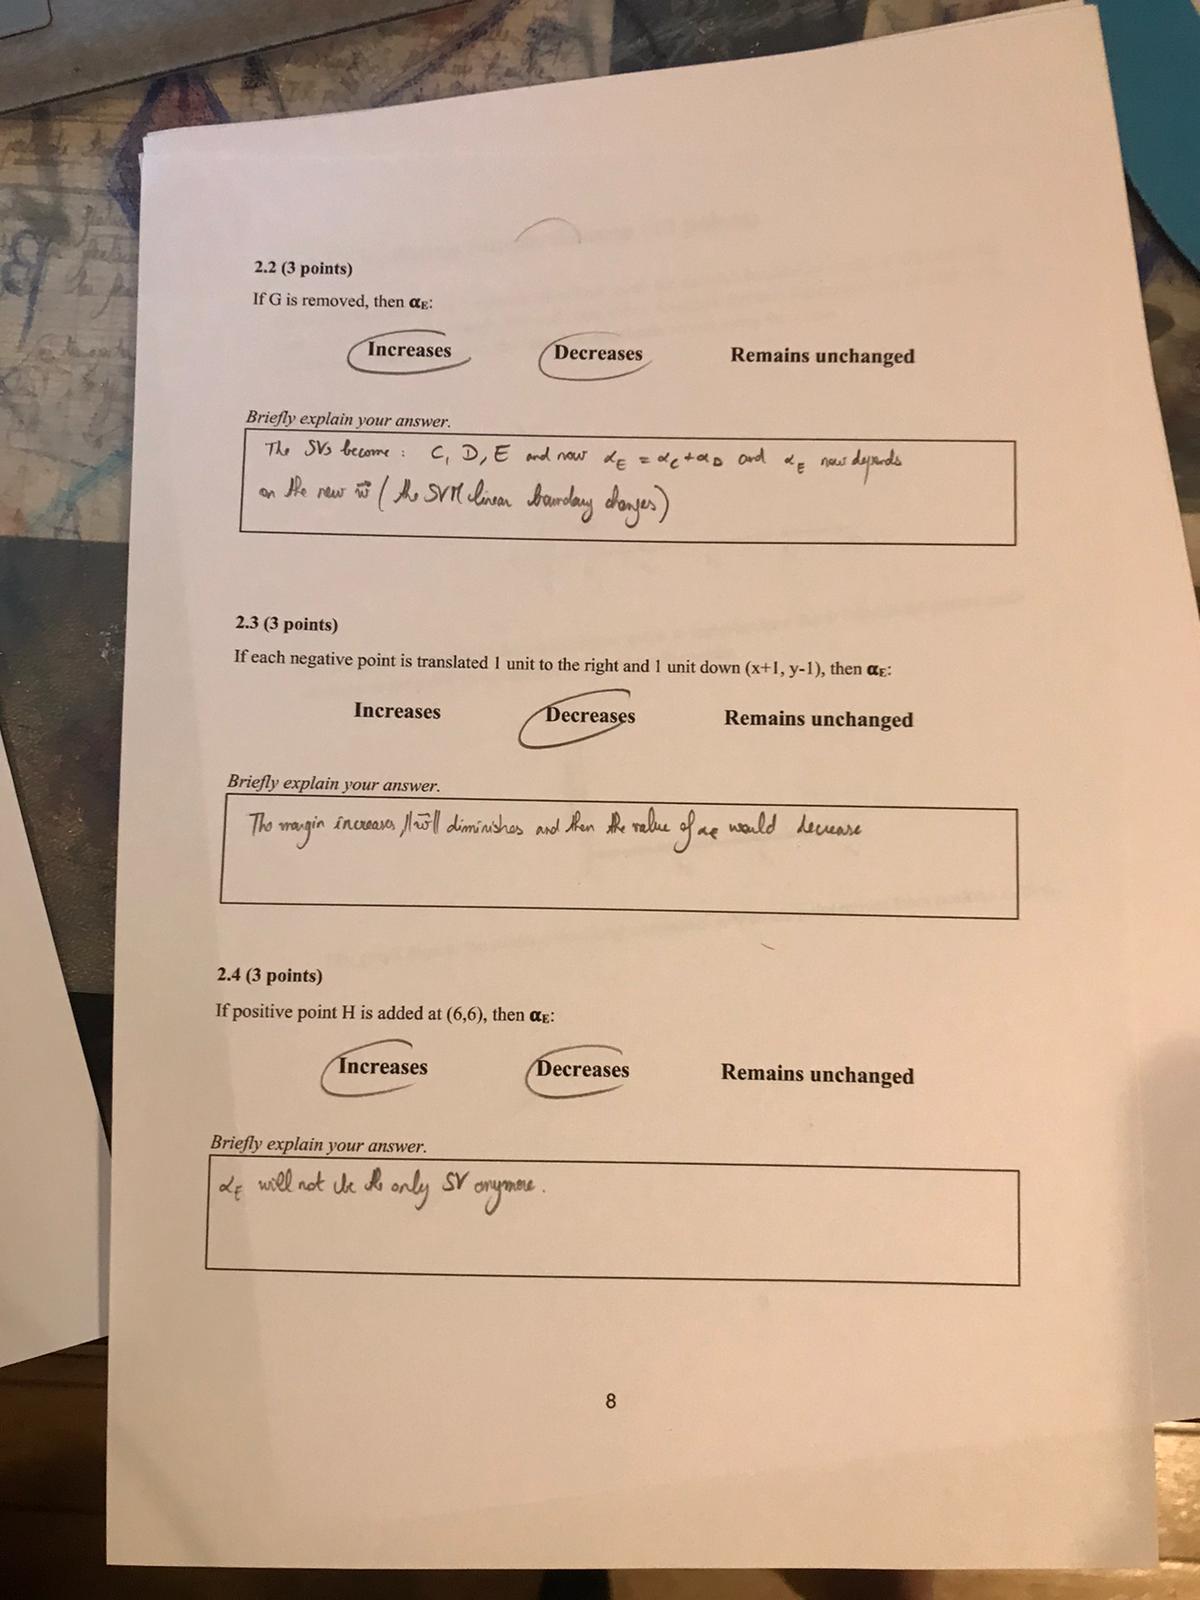 2.2 (3 points)
If G is removed, then αE:
Increases Decreases Remains unchanged
Briefly explain your answer.
The SVs become: C, D, E and now αE = αC+αD and αE now depends
on the new w⃗ (the SVM linear boundary changes)
2.3 (3 points)
If each negative point is translated 1 unit to the right and 1 unit down (x+1, y-1), then αE:
Increases Decreases Remains unchanged
Briefly explain your answer.
The margin increases, ||w⃗|| diminishes and then the value of αE would decrease
2.4 (3 points)
If positive point H is added at (6,6), then αE:
Increases Decreases Remains unchanged
Briefly explain your answer.
αE will not be the only SV anymore.
8